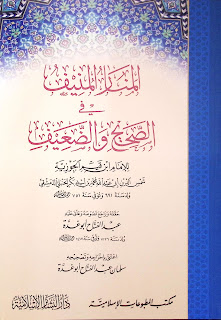 المنار المنيف
في
الصحيح والضعيف
للإمام ابن قيم الجوزية
شمس الدين أبي عبد الله محمد بن أبي بكر الحنبلي الدمشقي
ولد سنة ٦٩١ وتوفي سنة ٧٥١
حققه وخرج نصوصه وعلق عليه
عبد الفتاح أبو غدة
اعتنى بإخراجه وتصحيحه
سلمان عبد الفتاح أبو غدة
مكتب المطبوعات الإسلامية
دار البشائر الإسلامية